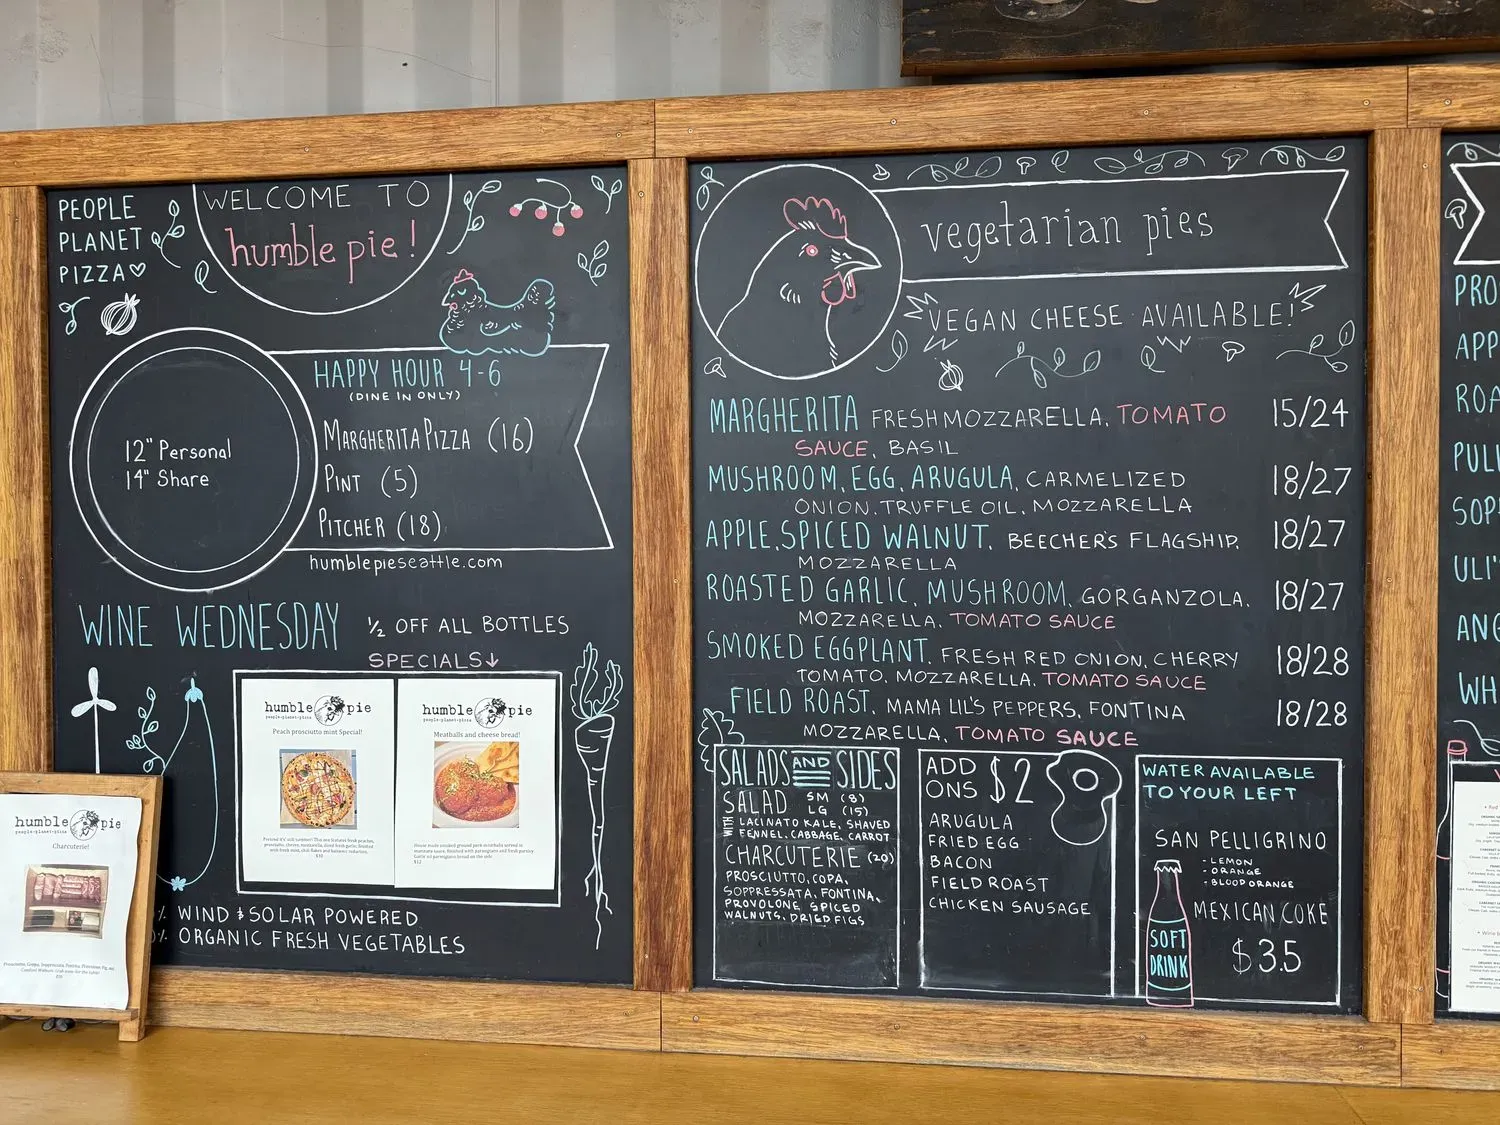 PEOPLE
PLANET
PIZZA
WELCOME TO
humble pie!
HAPPY HOUR 4-6
(DINE IN ONLY)
MARGHERITA PIZZA (16)
PINT (5)
PITCHER (18)
12" Personal
14" Share
humblepieseattle.com
WINE WEDNESDAY ½ OFF ALL BOTTLES
SPECIALS↓
humble pie
people-planet-pizza
Peach prosciutto mint Special!
humble pie
people-planet-pizza
Meatballs and cheese bread!
WIND & SOLAR POWERED
ORGANIC FRESH VEGETABLES
humble pie
people-planet-pizza
Charcuterie!
vegetarian pies
VEGAN CHEESE AVAILABLE!
MARGHERITA FRESH MOZZARELLA, TOMATO 15/24
SAUCE, BASIL
MUSHROOM, EGG, ARUGULA, CARMELIZED 18/27
ONION, TRUFFLE OIL, MOZZARELLA
APPLE, SPICED WALNUT, BEECHER'S FLAGSHIP, 18/27
MOZZARELLA
ROASTED GARLIC, MUSHROOM, GORGANZOLA, 18/27
MOZZARELLA, TOMATO SAUCE
SMOKED EGGPLANT, FRESH RED ONION, CHERRY 18/28
TOMATO, MOZZARELLA, TOMATO SAUCE
FIELD ROAST, MAMA LIL'S PEPPERS, FONTINA 18/28
MOZZARELLA, TOMATO SAUCE
SALADS AND SIDES
SALAD SM (8)
LG (15)
LACINATO KALE, SHAVED
FENNEL, CABBAGE, CARROT
CHARCUTERIE (20)
PROSCIUTTO, COPA,
SOPPRESSATA, FONTINA,
PROVOLONE, SPICED
WALNUTS, DRIED FIGS
ADD
ONS $2
ARUGULA
FRIED EGG
BACON
FIELD ROAST
CHICKEN SAUSAGE
WATER AVAILABLE
TO YOUR LEFT
SAN PELLIGRINO
- LEMON
- ORANGE
- BLOOD ORANGE
MEXICAN COKE
$3.5
SOFT
DRINK
PRO
APP
ROA
PUL
SOP
ULI'
ANG
WH